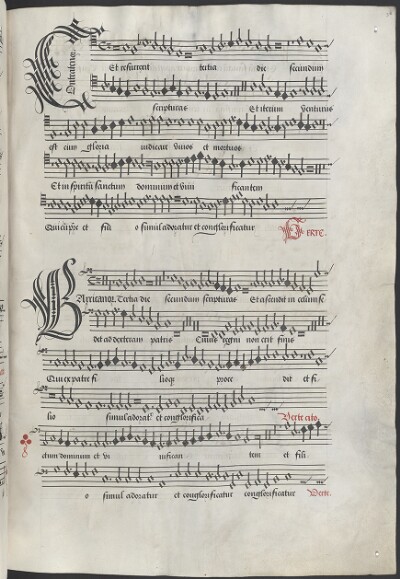 Contratenor
Et resurrexit tertia die secundum
scripturas Et iterum venturus
est cum gloria iudicare vivos et mortuos
Et in spiritum sanctum dominum et vivi ficantem
Qui cu pr̄e et fili o simul adoratur et conglorificatur VERTE.
Baricanor. Tertia die secundum scripturas Et ascendit in celum se
det ad dexteram patris Cuius regni non erit finis
Qui ex patre fi lioqz proce dit et fi
lio simul adorat᷑ et conglorifica Verte cito.
ctum dominum et vi vifican tem et fili
o simul adoratur et conglorificatur conglorificatur Verte.